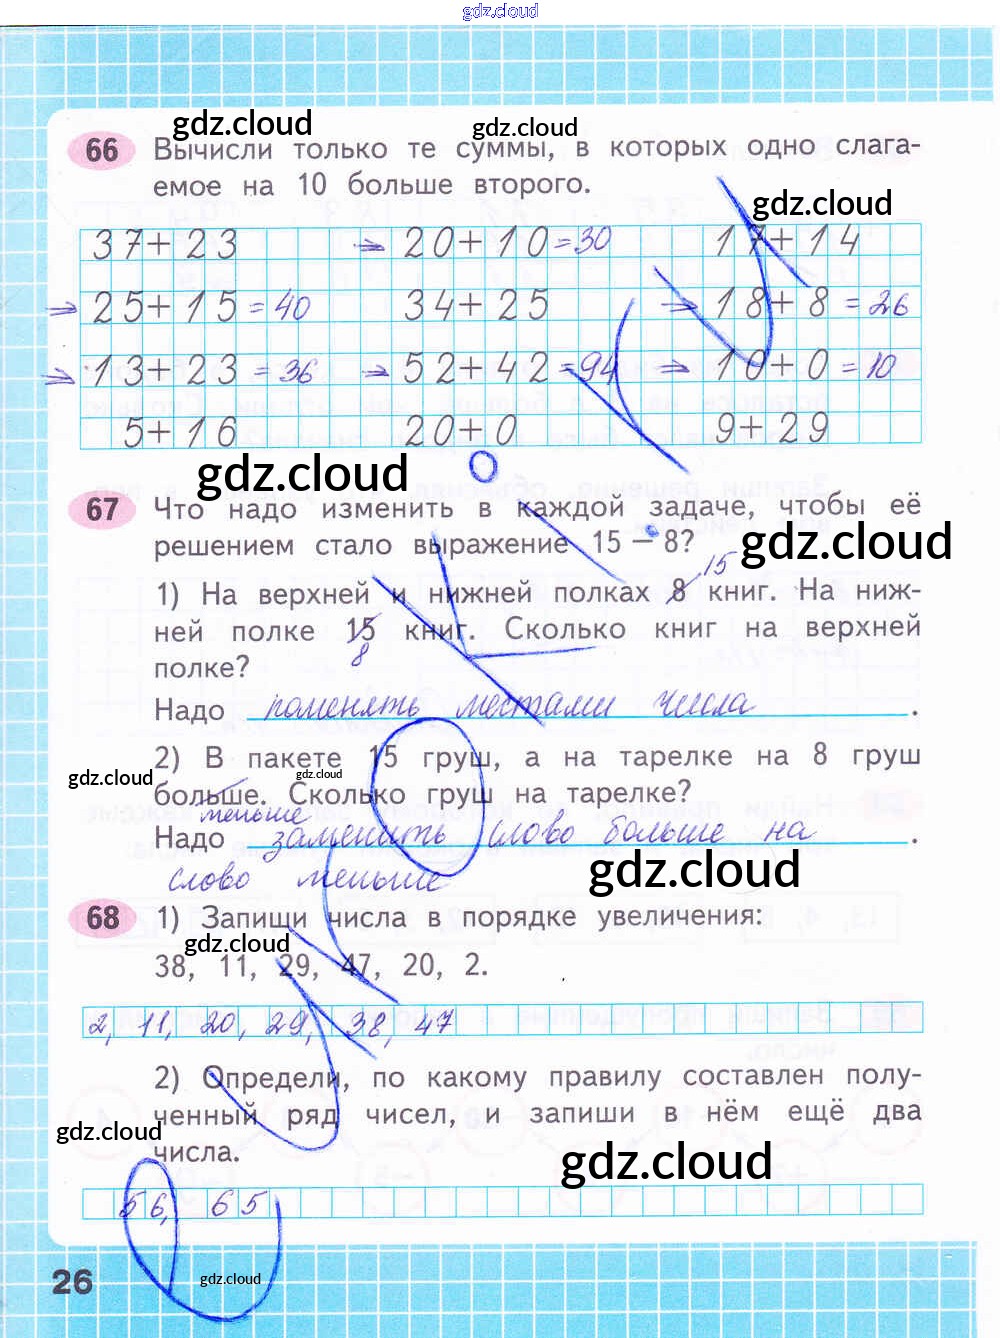 gdz.cloud
66 Вычисли только те суммы, в которых одно слага-
емое на 10 больше второго.
gdz.cloud gdz.cloud
gdz.cloud
37+23 → 20+10=30 17+14
→ 25+15=40 34+25 → 18+8=26
→ 13+23=36 → 52+42=94 → 10+0=10
5+16 20+0 9+29
gdz.cloud
67 Что надо изменить в каждой задаче, чтобы её
решением стало выражение 15 – 8?
gdz.cloud
15
1) На верхней и нижней полках 8 книг. На ниж-
ней полке 15 книг. Сколько книг на верхней
8
полке?
Надо поменять местами числа .
2) В пакете 15 груш, а на тарелке на 8 груш
gdz.cloud gdz.cloud
больше. Сколько груш на тарелке?
меньше
Надо заменить слово больше на .
слово меньше
gdz.cloud
68 1) Запиши числа в порядке увеличения:
gdz.cloud
38, 11, 29, 47, 20, 2.
2, 11, 20, 29, 38, 47
2) Определи, по какому правилу составлен полу-
ченный ряд чисел, и запиши в нём ещё два
gdz.cloud
числа.
gdz.cloud
56, 65
26
gdz.cloud